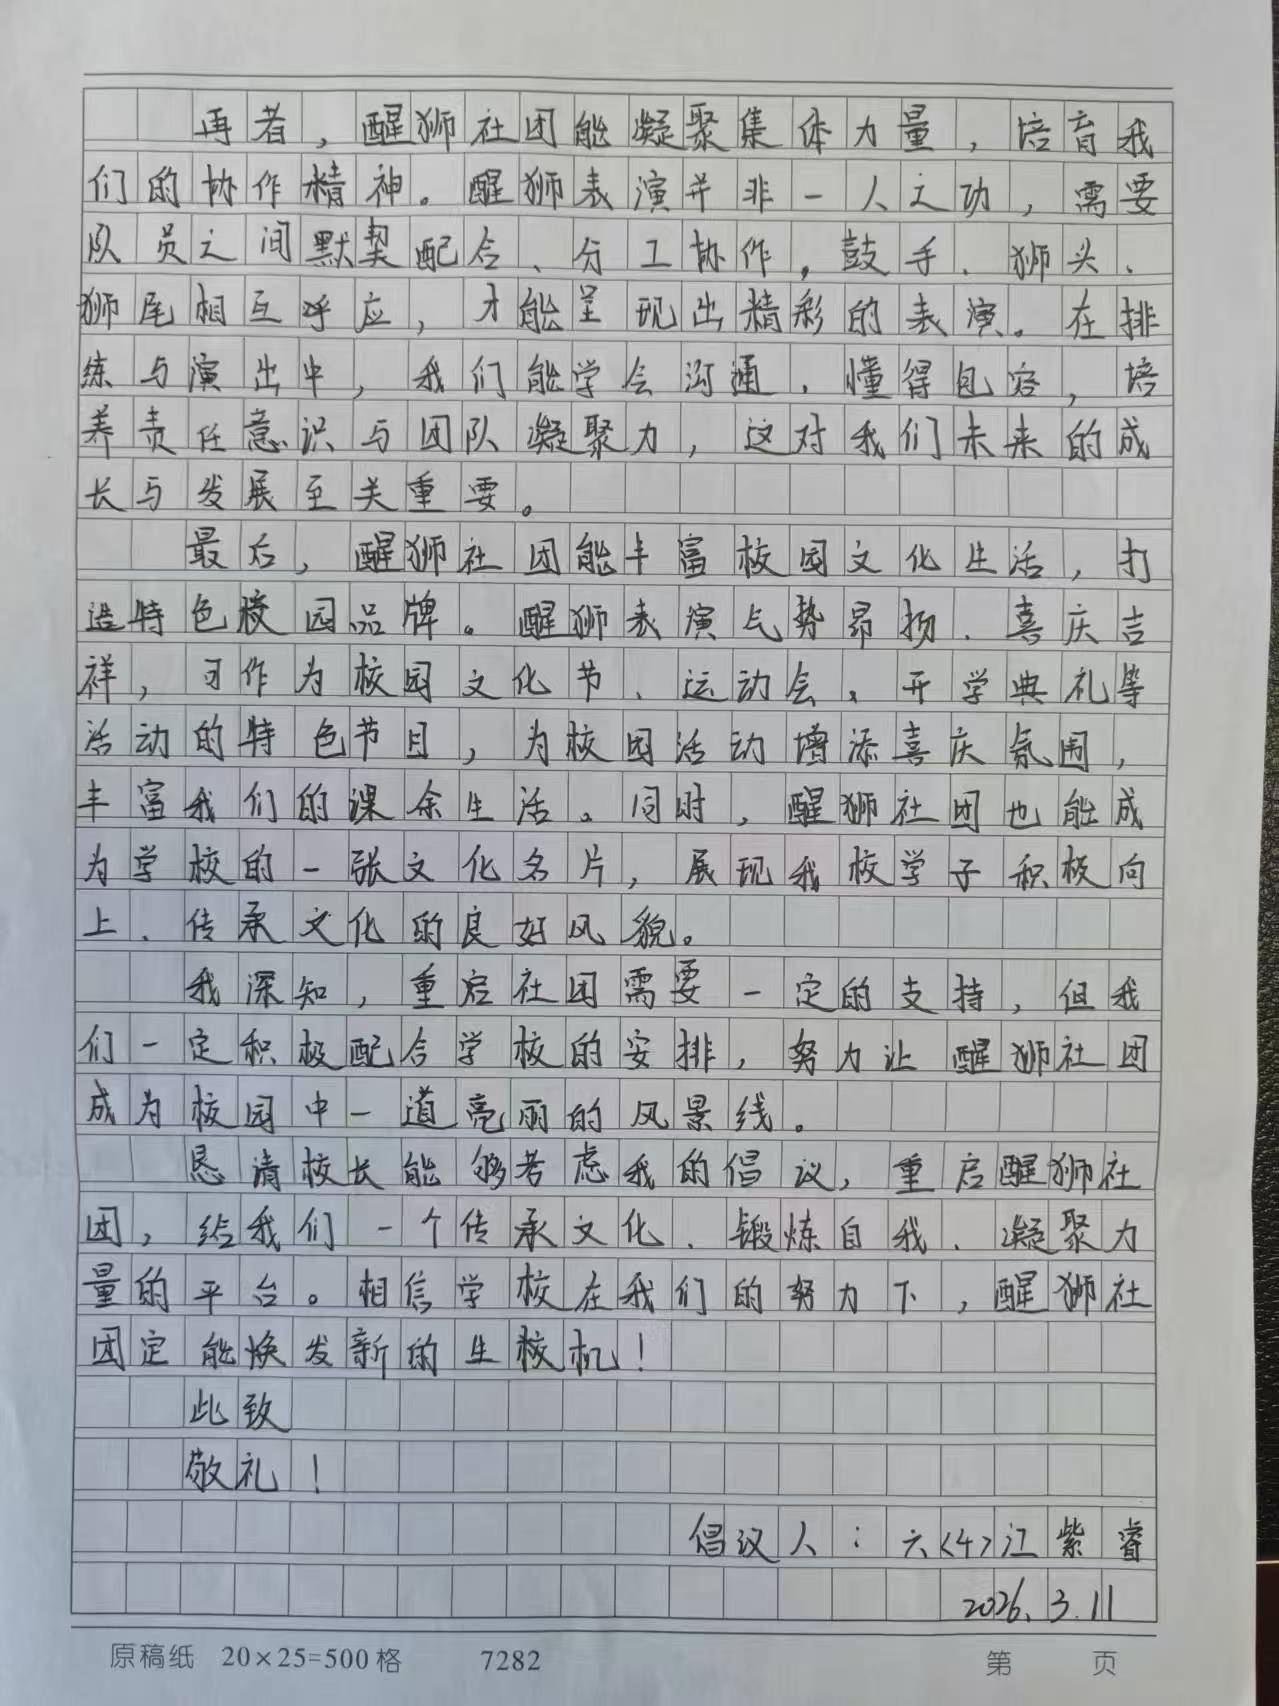 再者，醒狮社团能凝聚集体力量，培育我
们的协作精神。醒狮表演并非一人之功，需要
队员之间默契配合、分工协作，鼓手、狮头、
狮尾相互呼应，才能呈现出精彩的表演。在排
练与演出中，我们能学会沟通，懂得包容，培
养责任意识与团队凝聚力，这对我们未来的成
长与发展至关重要。
最后，醒狮社团能丰富校园文化生活，打
造特色校园品牌。醒狮表演气势昂扬、喜庆吉
祥，可作为校园文化节、运动会、开学典礼等
活动的特色节目，为校园活动增添喜庆氛围，
丰富我们的课余生活。同时，醒狮社团也能成
为学校的一张文化名片，展现我校学子积极向
上、传承文化的良好风貌。
我深知，重启社团需要一定的支持，但我
们一定积极配合学校的安排，努力让醒狮社团
成为校园中一道亮丽的风景线。
恳请校长能够考虑我的倡议，重启醒狮社
团，给我们一个传承文化、锻炼自我、凝聚力
量的平台。相信学校在我们的努力下，醒狮社
团定能焕发新的生校机！
此致
敬礼！
倡议人：六<4>江紫睿
2026.3.11
原稿纸 20×25=500格 7282 第 页